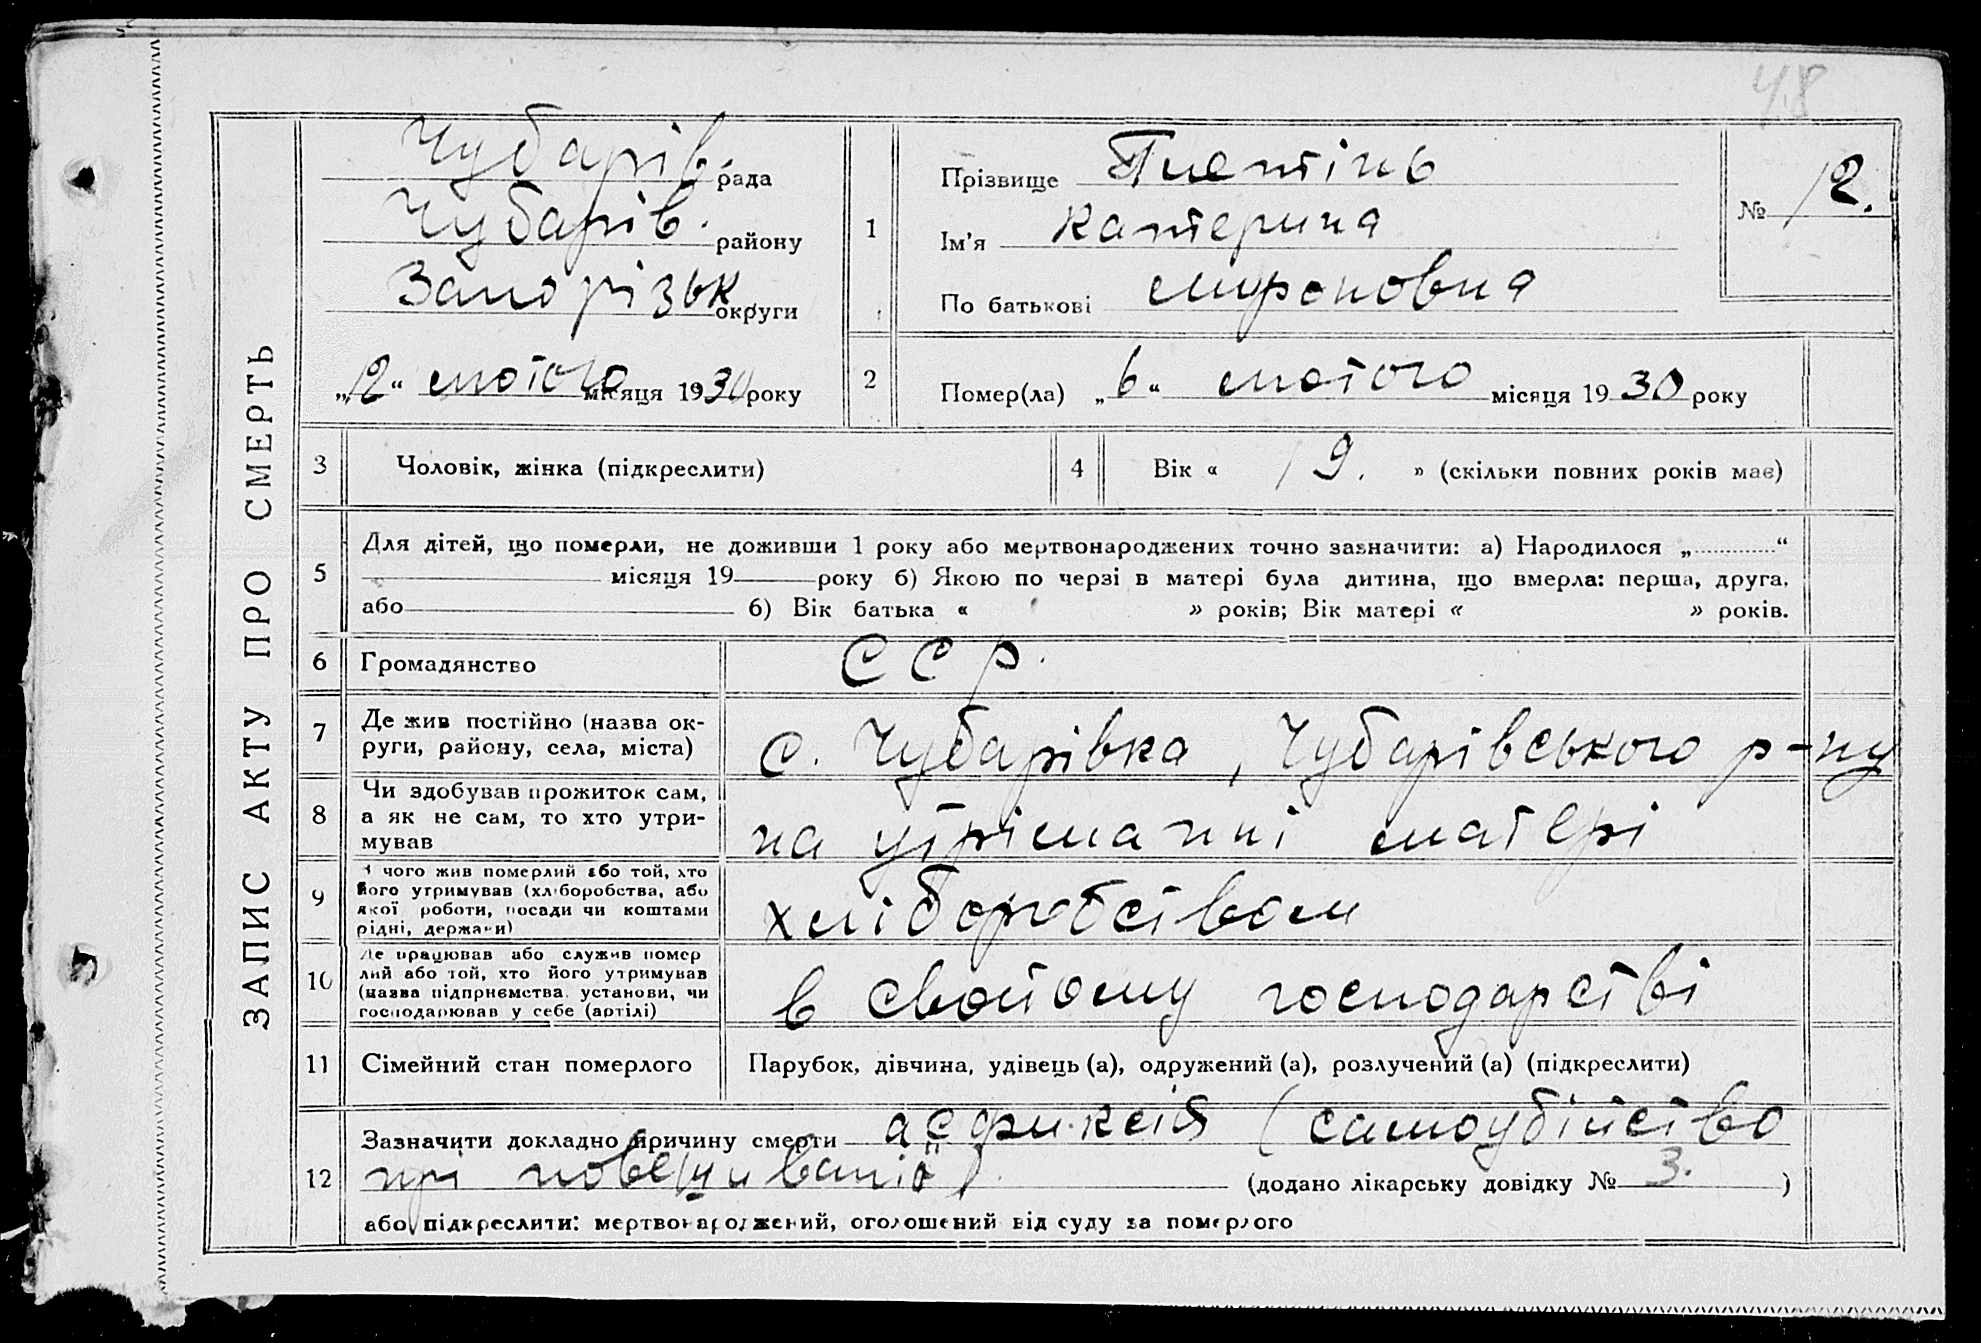 48
ЗАПИС АКТУ ПРО СМЕРТЬ
Чубарів. рада
Чубарів. району
Запорізьк округи
„12“ лютого місяця 1930 року
1
Прізвище Плетінь
Ім'я Катерина
По батькові Мироновна
№ 12.
2
Помер(ла) „6“ лютого місяця 1930 року
3 Чоловік, жінка (підкреслити)
4 Вік « 19. » (скільки повних років має)
5
Для дітей, що померли, не доживши 1 року або мертвонароджених точно зазначити: а) Народилося „ “
місяця 19 року б) Якою по черзі в матері була дитина, що вмерла: перша, друга,
або б) Вік батька « » років; Вік матері « » років.
6 Громадянство ССР.
7 Де жив постійно (назва ок-
руги, району, села, міста)
с. Чубарівка, Чубарівського р-ну
8 Чи здобував прожиток сам,
а як не сам, то хто утри-
мував
на утріманні матері
9 З чого жив померлий або той, хто
його утримував (хліборобства, або
якої роботи, посади чи коштами
рідні, держави)
хліборобством
10 Де працював або служив помер
лий або той, хто його утримував
(назва підприємства, установи, чи
господарював у себе (артілі)
в свойому господарстві
11 Сімейний стан померлого Парубок, дівчина, удівець (а), одружений (а), розлучений (а) (підкреслити)
12
Зазначити докладно причину смерти асфиксія (самоубійство
прі повешиванії) (додано лікарську довідку № 3. )
або підкреслити: мертвонароджений, оголошений від суду за померлого